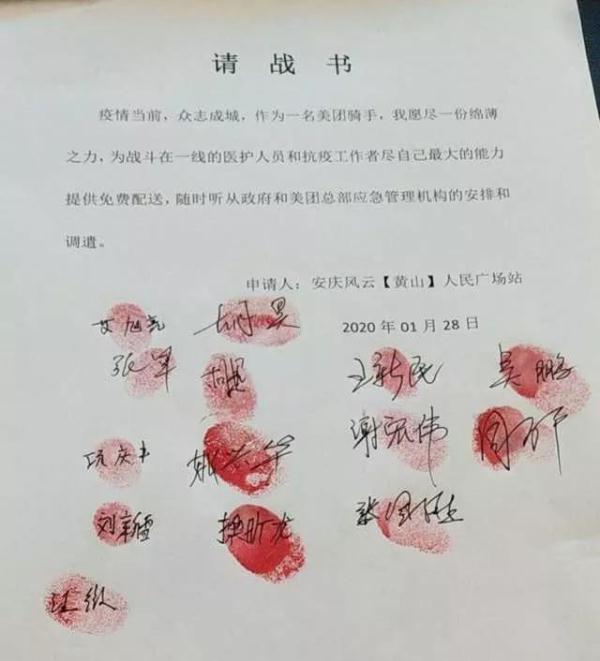 请战书
疫情当前，众志成城，作为一名美团骑手，我愿尽一份绵薄
之力，为战斗在一线的医护人员和抗疫工作者尽自己最大的能力
提供免费配送，随时听从政府和美团总部应急管理机构的安排和
调遣。
申请人：安庆风云【黄山】人民广场站
2020 年 01 月 28 日
张军
王新民
吴鹏
谢宏伟
刘新雪
操昕龙